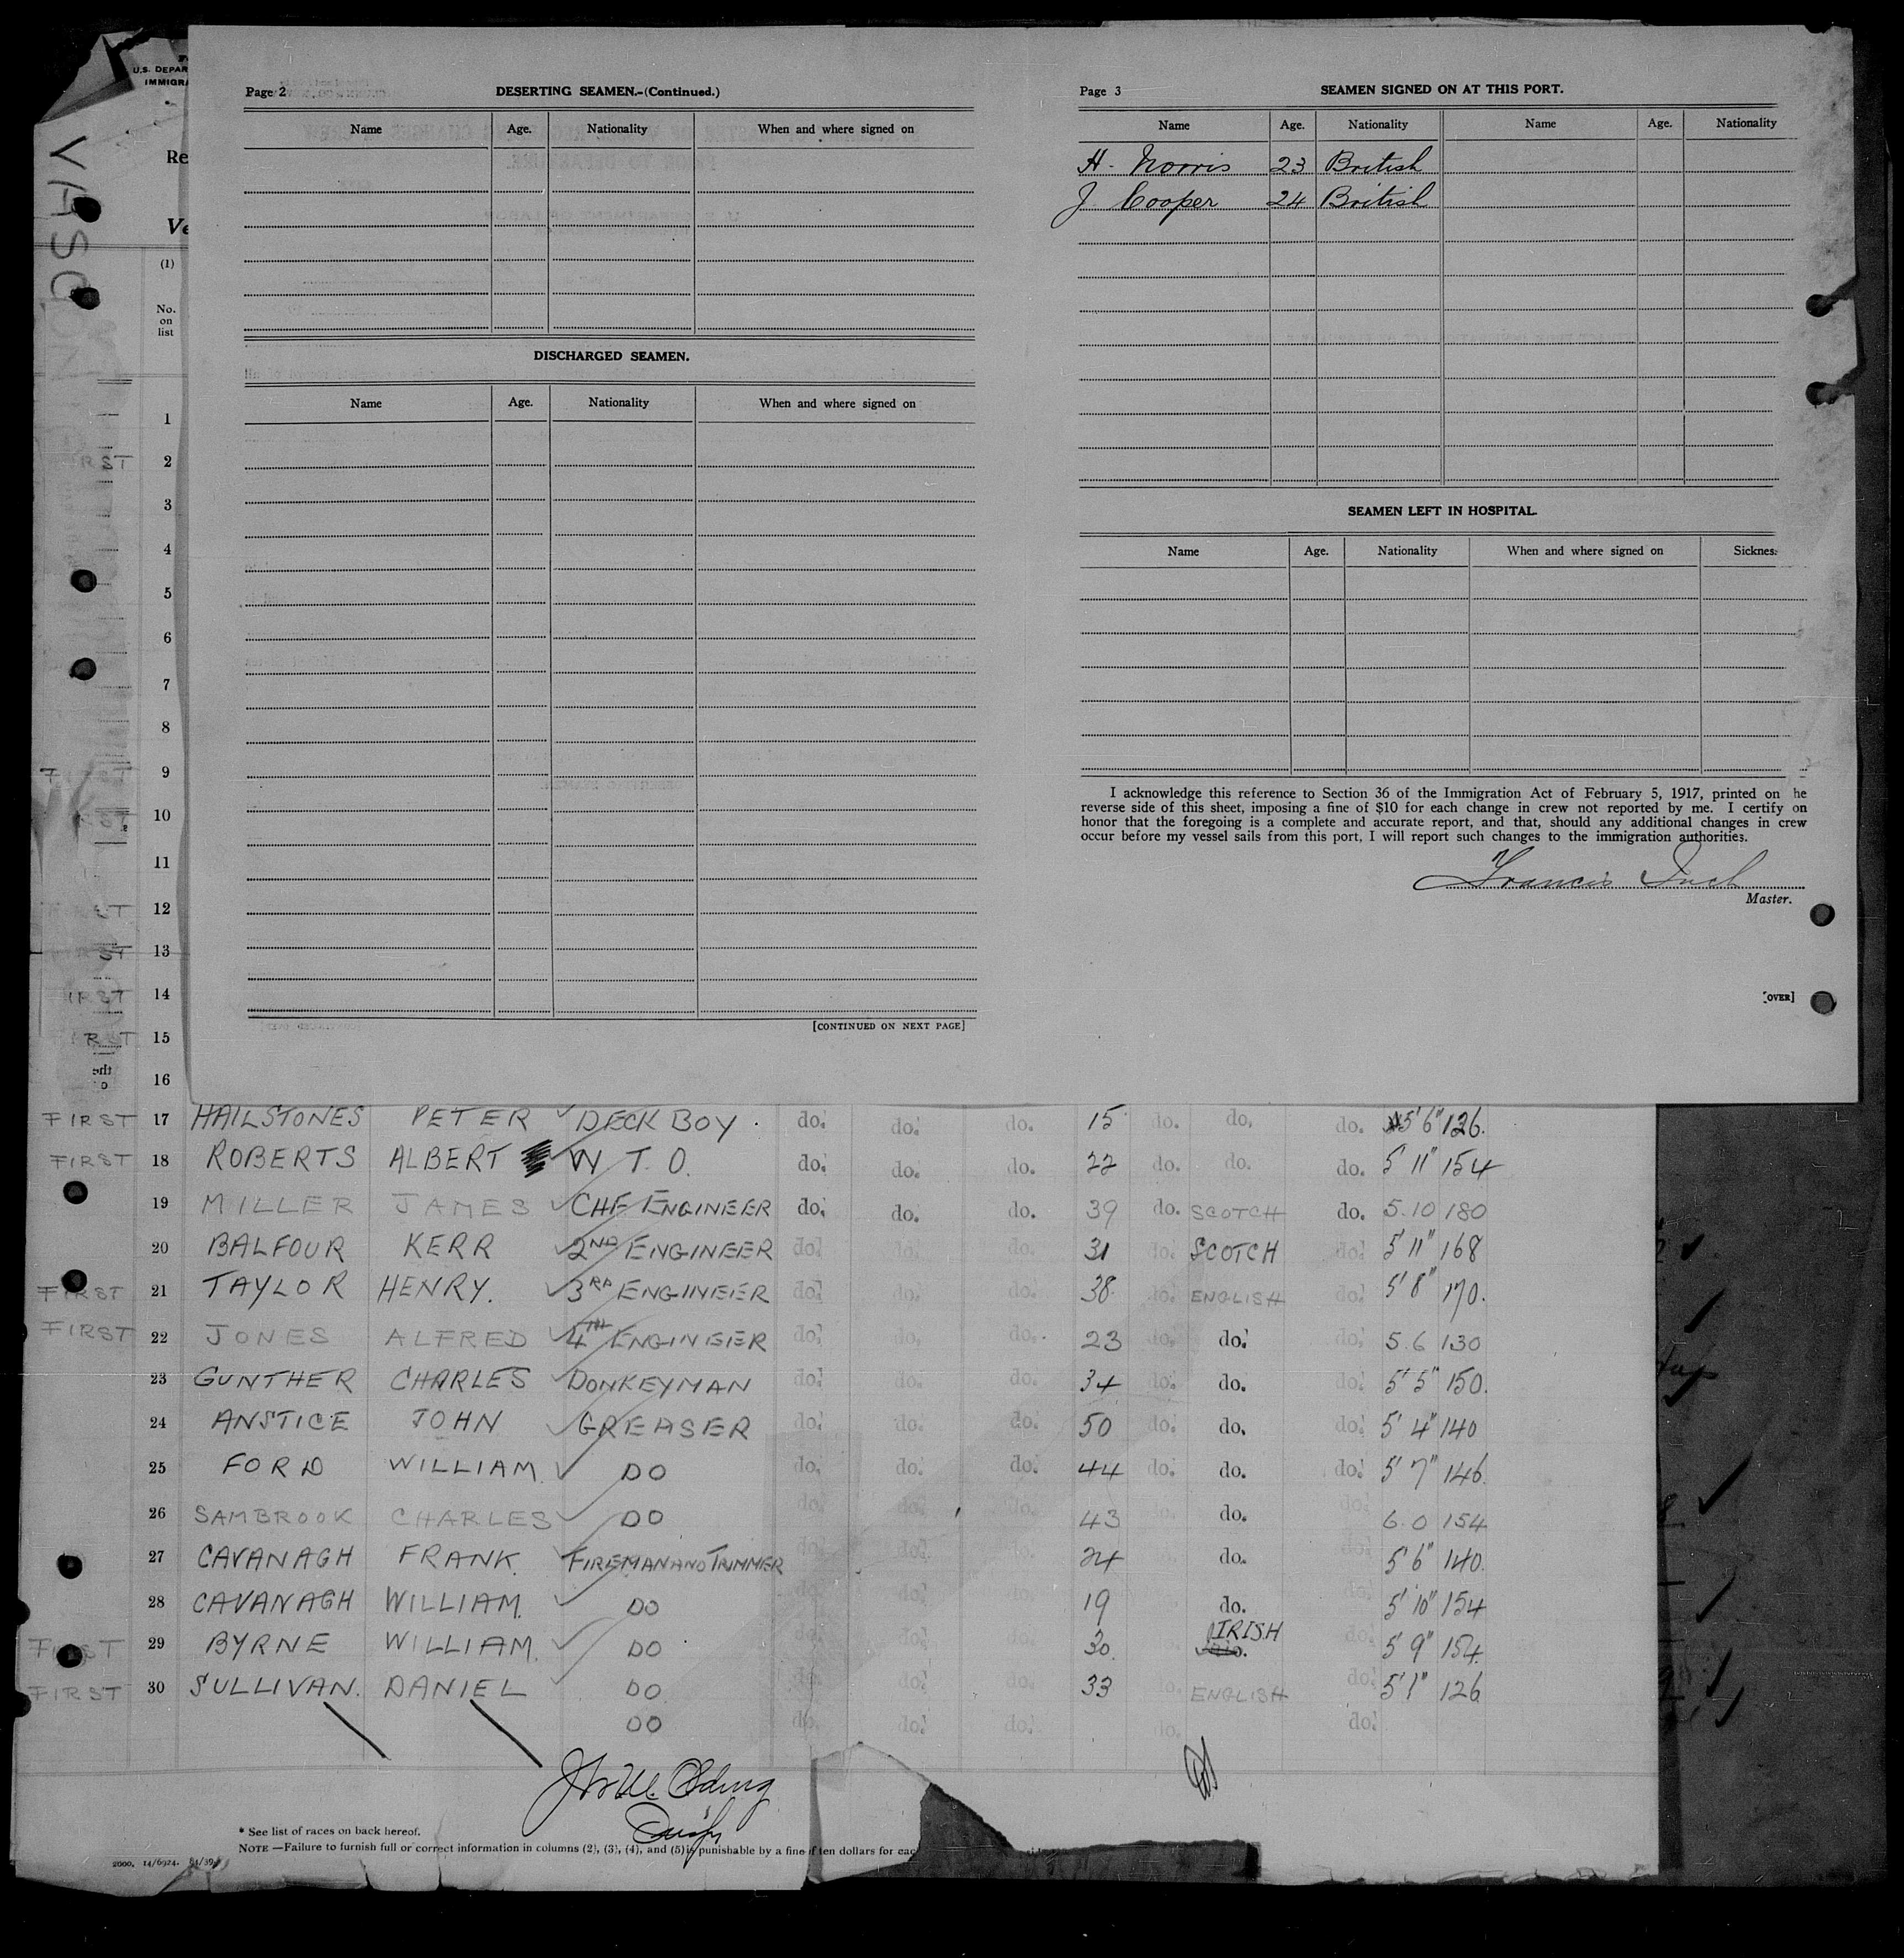 U.S. DEPAR
IMMIGRA
Re
Ve
(1)
No.
on
list
Page 2
DESERTING SEAMEN.-(Continued.)
Name Age. Nationality When and where signed on
DISCHARGED SEAMEN.
Name Age. Nationality When and where signed on
[CONTINUED ON NEXT PAGE]
Page 3
SEAMEN SIGNED ON AT THIS PORT.
Name Age. Nationality Name Age. Nationality
H. Norris 23 British
J Cooper 24 British
SEAMEN LEFT IN HOSPITAL.
Name Age. Nationality When and where signed on Sicknes
I acknowledge this reference to Section 36 of the Immigration Act of February 5, 1917, printed on he
reverse side of this sheet, imposing a fine of $10 for each change in crew not reported by me. I certify on
honor that the foregoing is a complete and accurate report, and that, should any additional changes in crew
occur before my vessel sails from this port, I will report such changes to the immigration authorities.
Francis Inch
Master.
[OVER]
1
RST 2
3
4
5
6
7
8
9
RST 10
11
12
RST 13
IRST 14
RST 15
16
FIRST 17 HAILSTONES PETER DECK BOY. do. do. do. 15 do. do. do. 5' 6" 126.
FIRST 18 ROBERTS ALBERT W. T. O. do. do. do. 22 do. do. do. 5' 11" 154
19 MILLER JAMES CHF ENGINEER do. do. do. 39 do. SCOTCH do. 5.10 180
20 BALFOUR KERR 2ND ENGINEER do. do. do. 31 do. SCOTCH do. 5' 11" 168
FIRST 21 TAYLOR HENRY. 3RD ENGINEER do. do. do. 38 do. ENGLISH do. 5' 8" 170.
FIRST 22 JONES ALFRED 4TH ENGINEER do. do. do. 23 do. do. do. 5.6 130
23 GUNTHER CHARLES DONKEYMAN do. do. do. 34 do. do. do. 5' 5" 150.
24 ANSTICE JOHN GREASER do. do. do. 50 do. do. do. 5' 4" 140
25 FORD WILLIAM. DO do. do. do. 44 do. do. do. 5' 7" 146.
26 SAMBROOK CHARLES DO do. do. do. 43 do. do. 6.0 154
27 CAVANAGH FRANK. FIREMAN AND TRIMMER do. do. do. 24 do. do. 5' 6" 140.
28 CAVANAGH WILLIAM. DO do. do. do. 19 do. do. 5' 10" 154
FIRST 29 BYRNE WILLIAM. DO do. do. do. 30. IRISH do. 5' 9" 154.
FIRST 30 SULLIVAN. DANIEL DO do. do. do. 33 do. ENGLISH do. 5' 1" 126
DO do. do. do. do. do.
* See list of races on back hereof.
NOTE —Failure to furnish full or correct information in columns (2), (3), (4), and (5) is punishable by a fine of ten dollars for eac
2000. 14/6924.